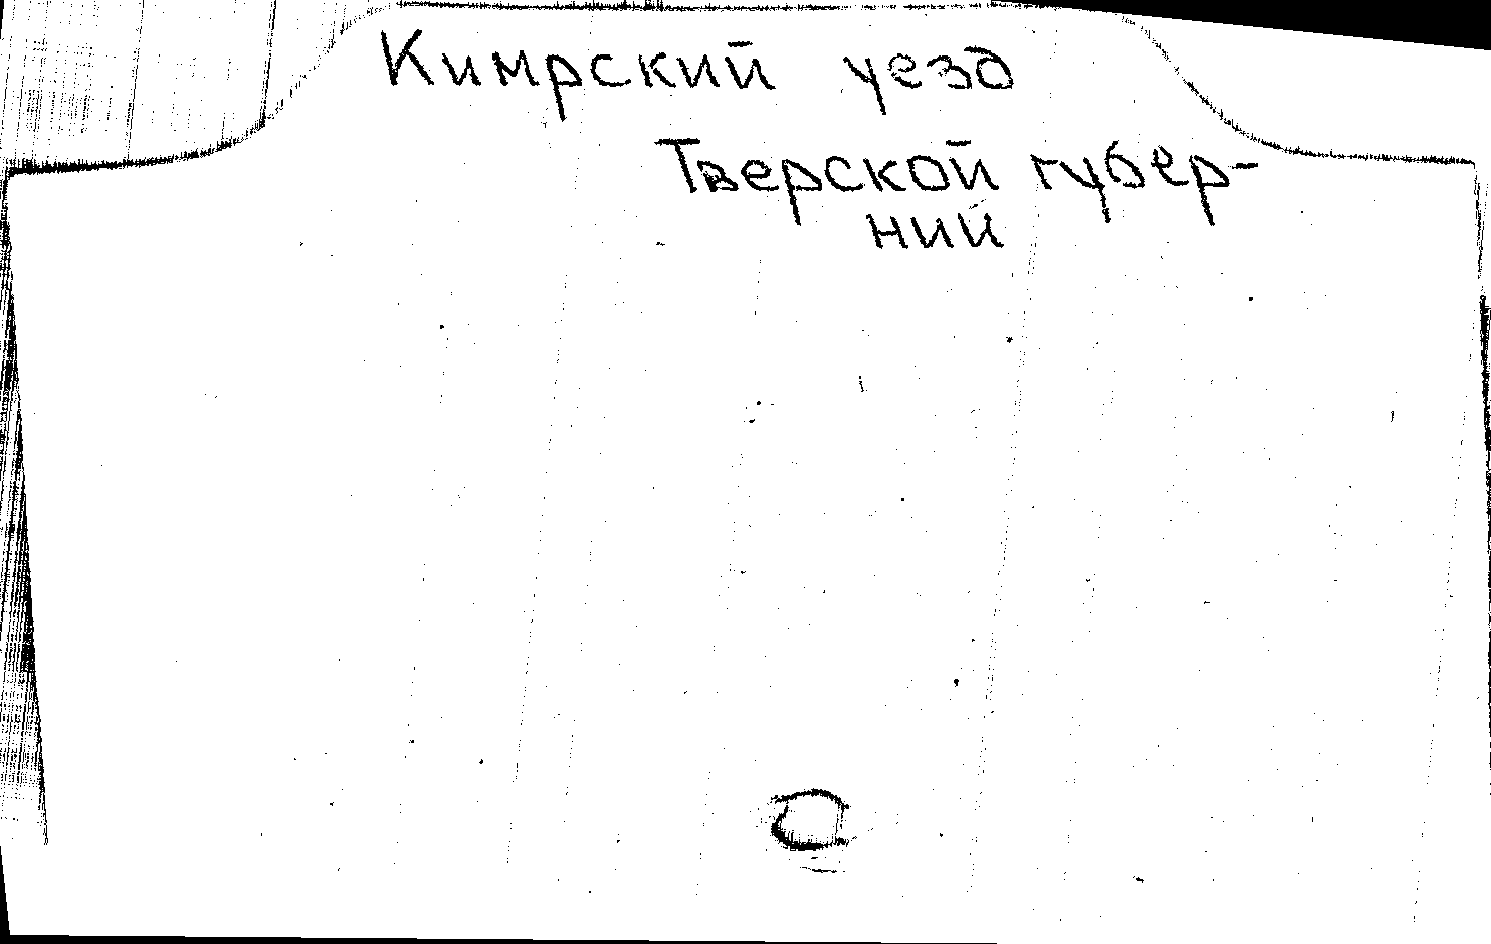 Кимрский уезд
Тверской губер-
ний